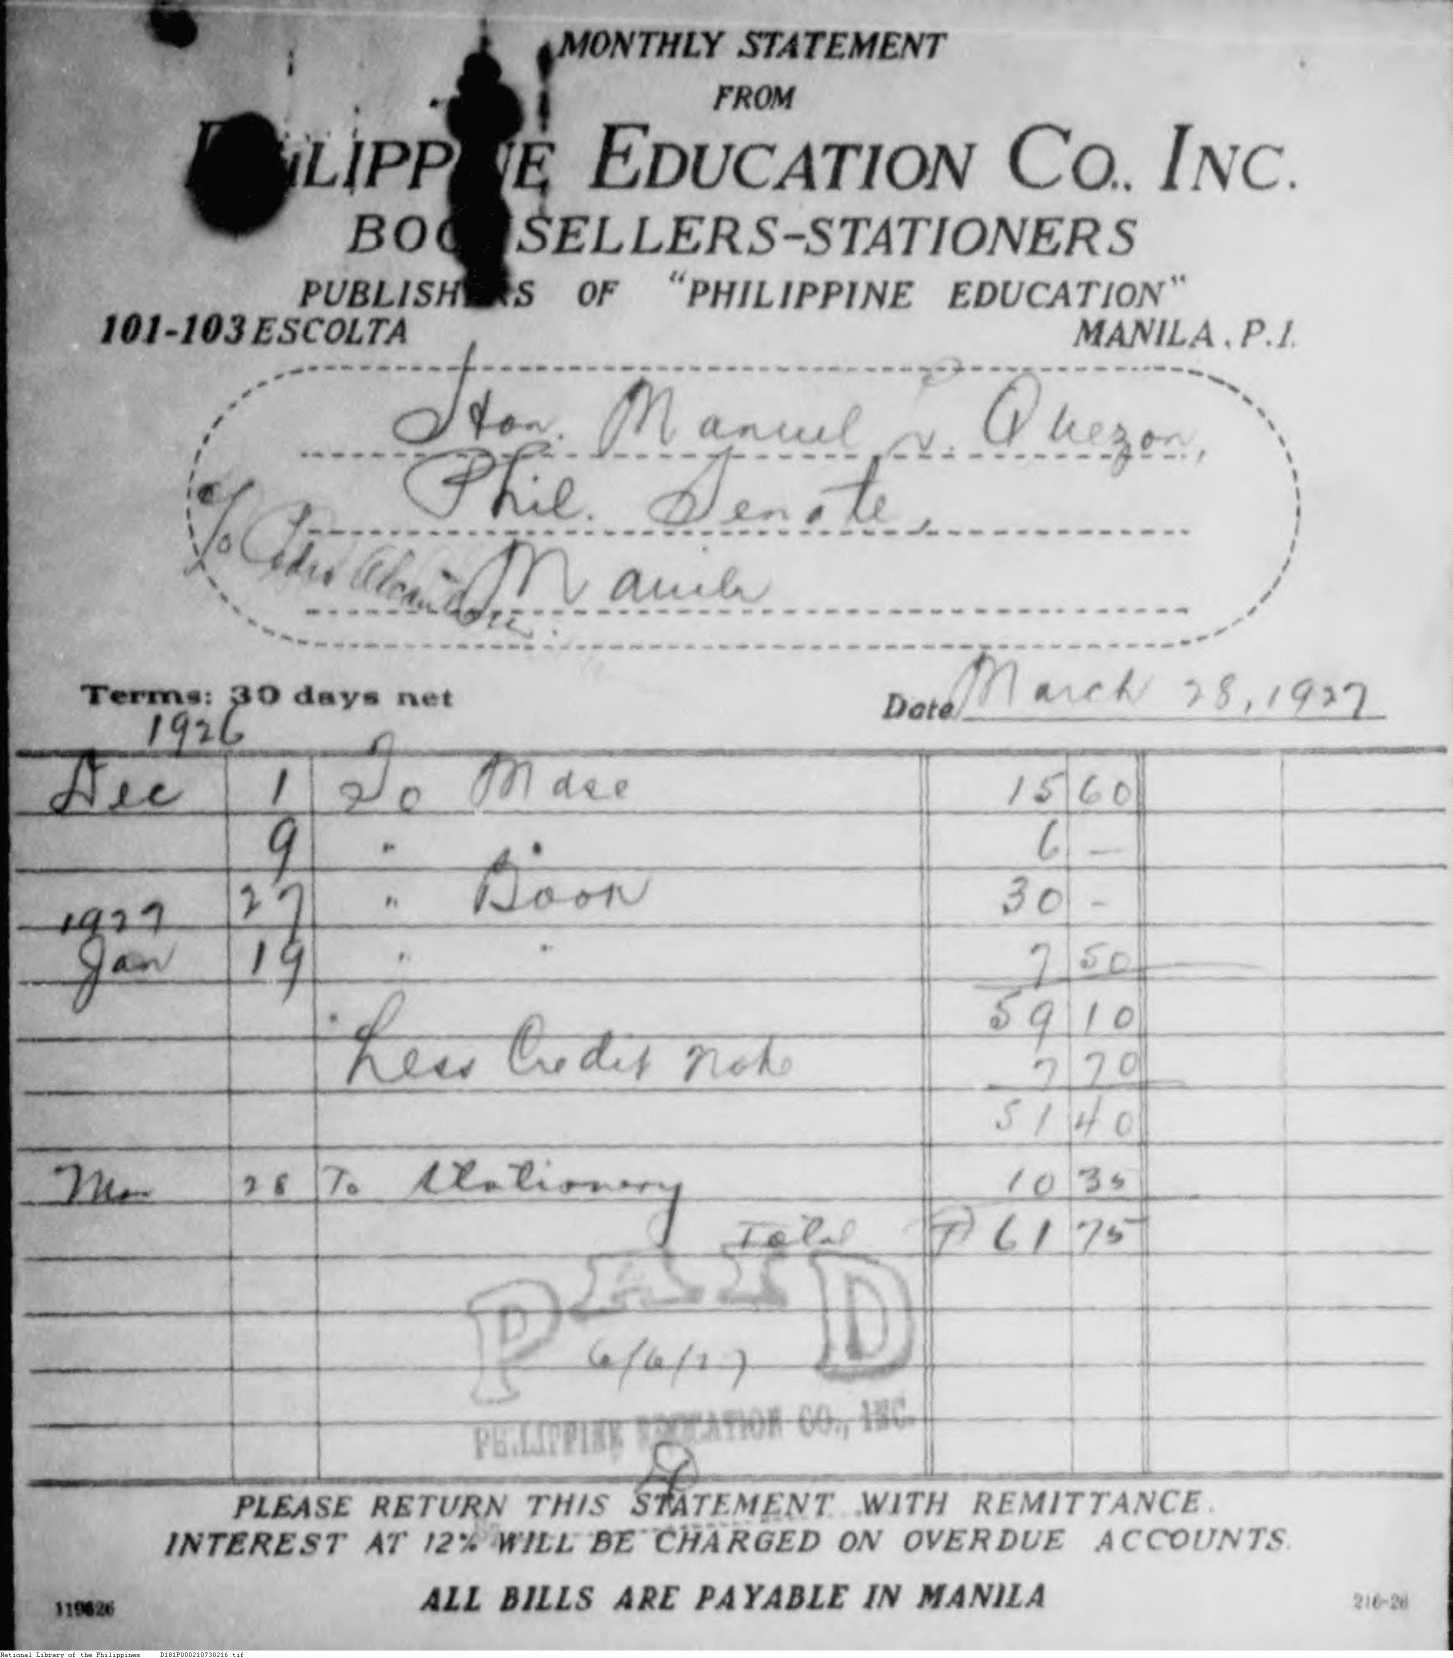 MONTHLY STATEMENT
FROM
PHILIPPINE EDUCATION CO., INC.
BOOKSELLERS-STATIONERS
PUBLISHERS OF "PHILIPPINE EDUCATION"
101-103 ESCOLTA MANILA, P.I.
Hon. Manuel L. Quezon,
Phil. Senate,
Manila
c/o Pedro
Terms: 30 days net Date March 28, 1927
1926
Dec 1 To Mdse 15 60
9 " " 6 —
27 " Book 30 -
1927
Jan 19 " " 7 50
59 10
Less Credit Note 7 70
51 40
Mar 28 To Stationery 10 35
Total ₱ 61 75
PAID
6/6/27
PHILIPPINE EDUCATION CO., INC.
PLEASE RETURN THIS STATEMENT WITH REMITTANCE.
INTEREST AT 12% WILL BE CHARGED ON OVERDUE ACCOUNTS.
ALL BILLS ARE PAYABLE IN MANILA
119626 216-26
National Library of the Philippines D181P000210730216.tif